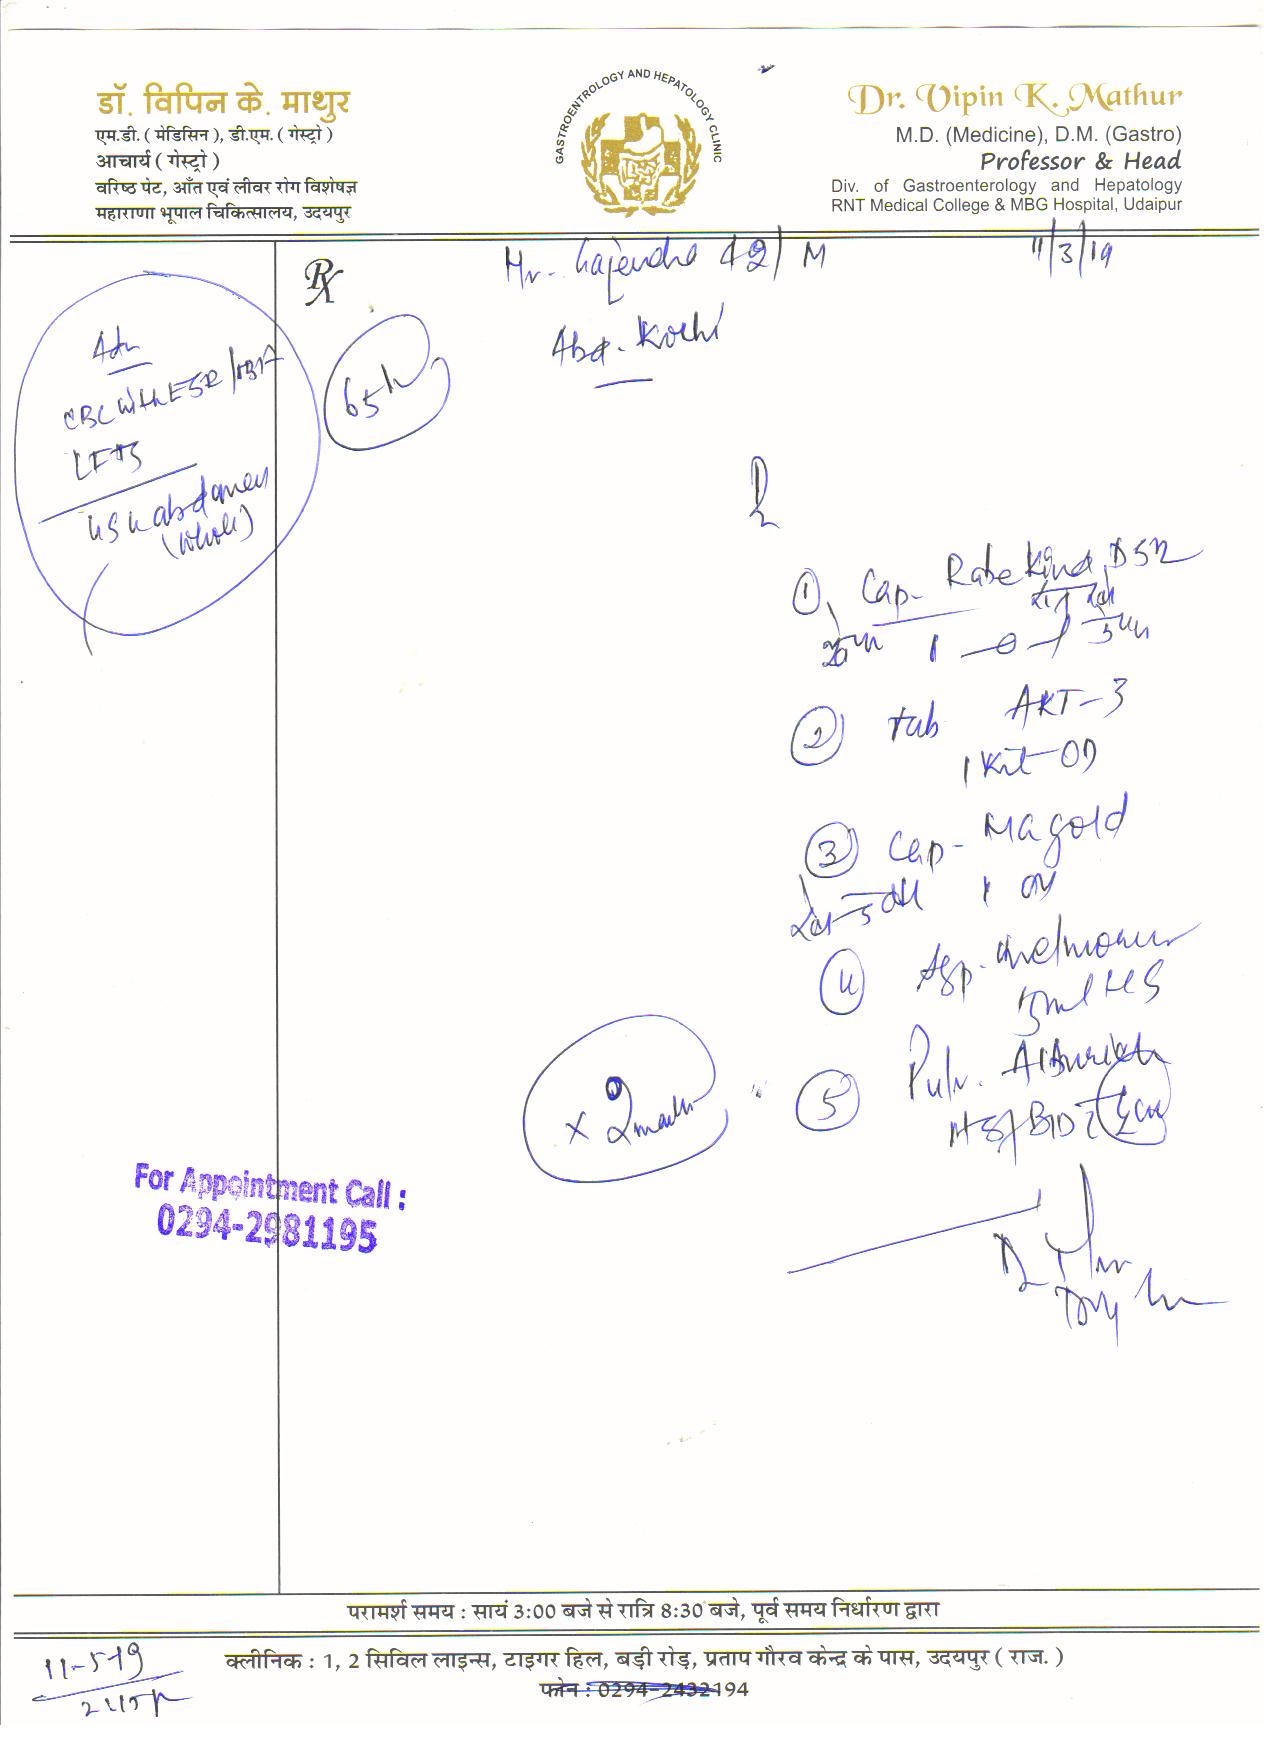 डॉ. विपिन के. माथुर
एम.डी. ( मेडिसिन ), डी.एम. ( गेस्ट्रो )
आचार्य ( गेस्ट्रो )
वरिष्ठ पेट, आँत एवं लीवर रोग विशेषज्ञ
महाराणा भूपाल चिकित्सालय, उदयपुर
GASTROENTROLOGY AND HEPATOLOGY CLINIC
Dr. Vipin K. Mathur
M.D. (Medicine), D.M. (Gastro)
Professor & Head
Div. of Gastroenterology and Hepatology
RNT Medical College & MBG Hospital, Udaipur
Rx
Mr. Gajendra 42/ M
11/3/19
Abd. Koch
Adv
CBC with ESR
LFTS
abdomen
(whole)
65
① Cap- Rabekind DSR
1 -0-1
② tab AKT-3
1 Kit-OD
③ Cap- MAgold
1 OD
④ Syp.
5ml HS
⑤ Pulv.
HS/BD
x 2 month
For Appointment Call :
0294-2981195
परामर्श समय : सायं 3:00 बजे से रात्रि 8:30 बजे, पूर्व समय निर्धारण द्वारा
क्लीनिक : 1, 2 सिविल लाइन्स, टाइगर हिल, बड़ी रोड़, प्रताप गौरव केन्द्र के पास, उदयपुर ( राज. )
फोन : 0294-2432194
11-5-19